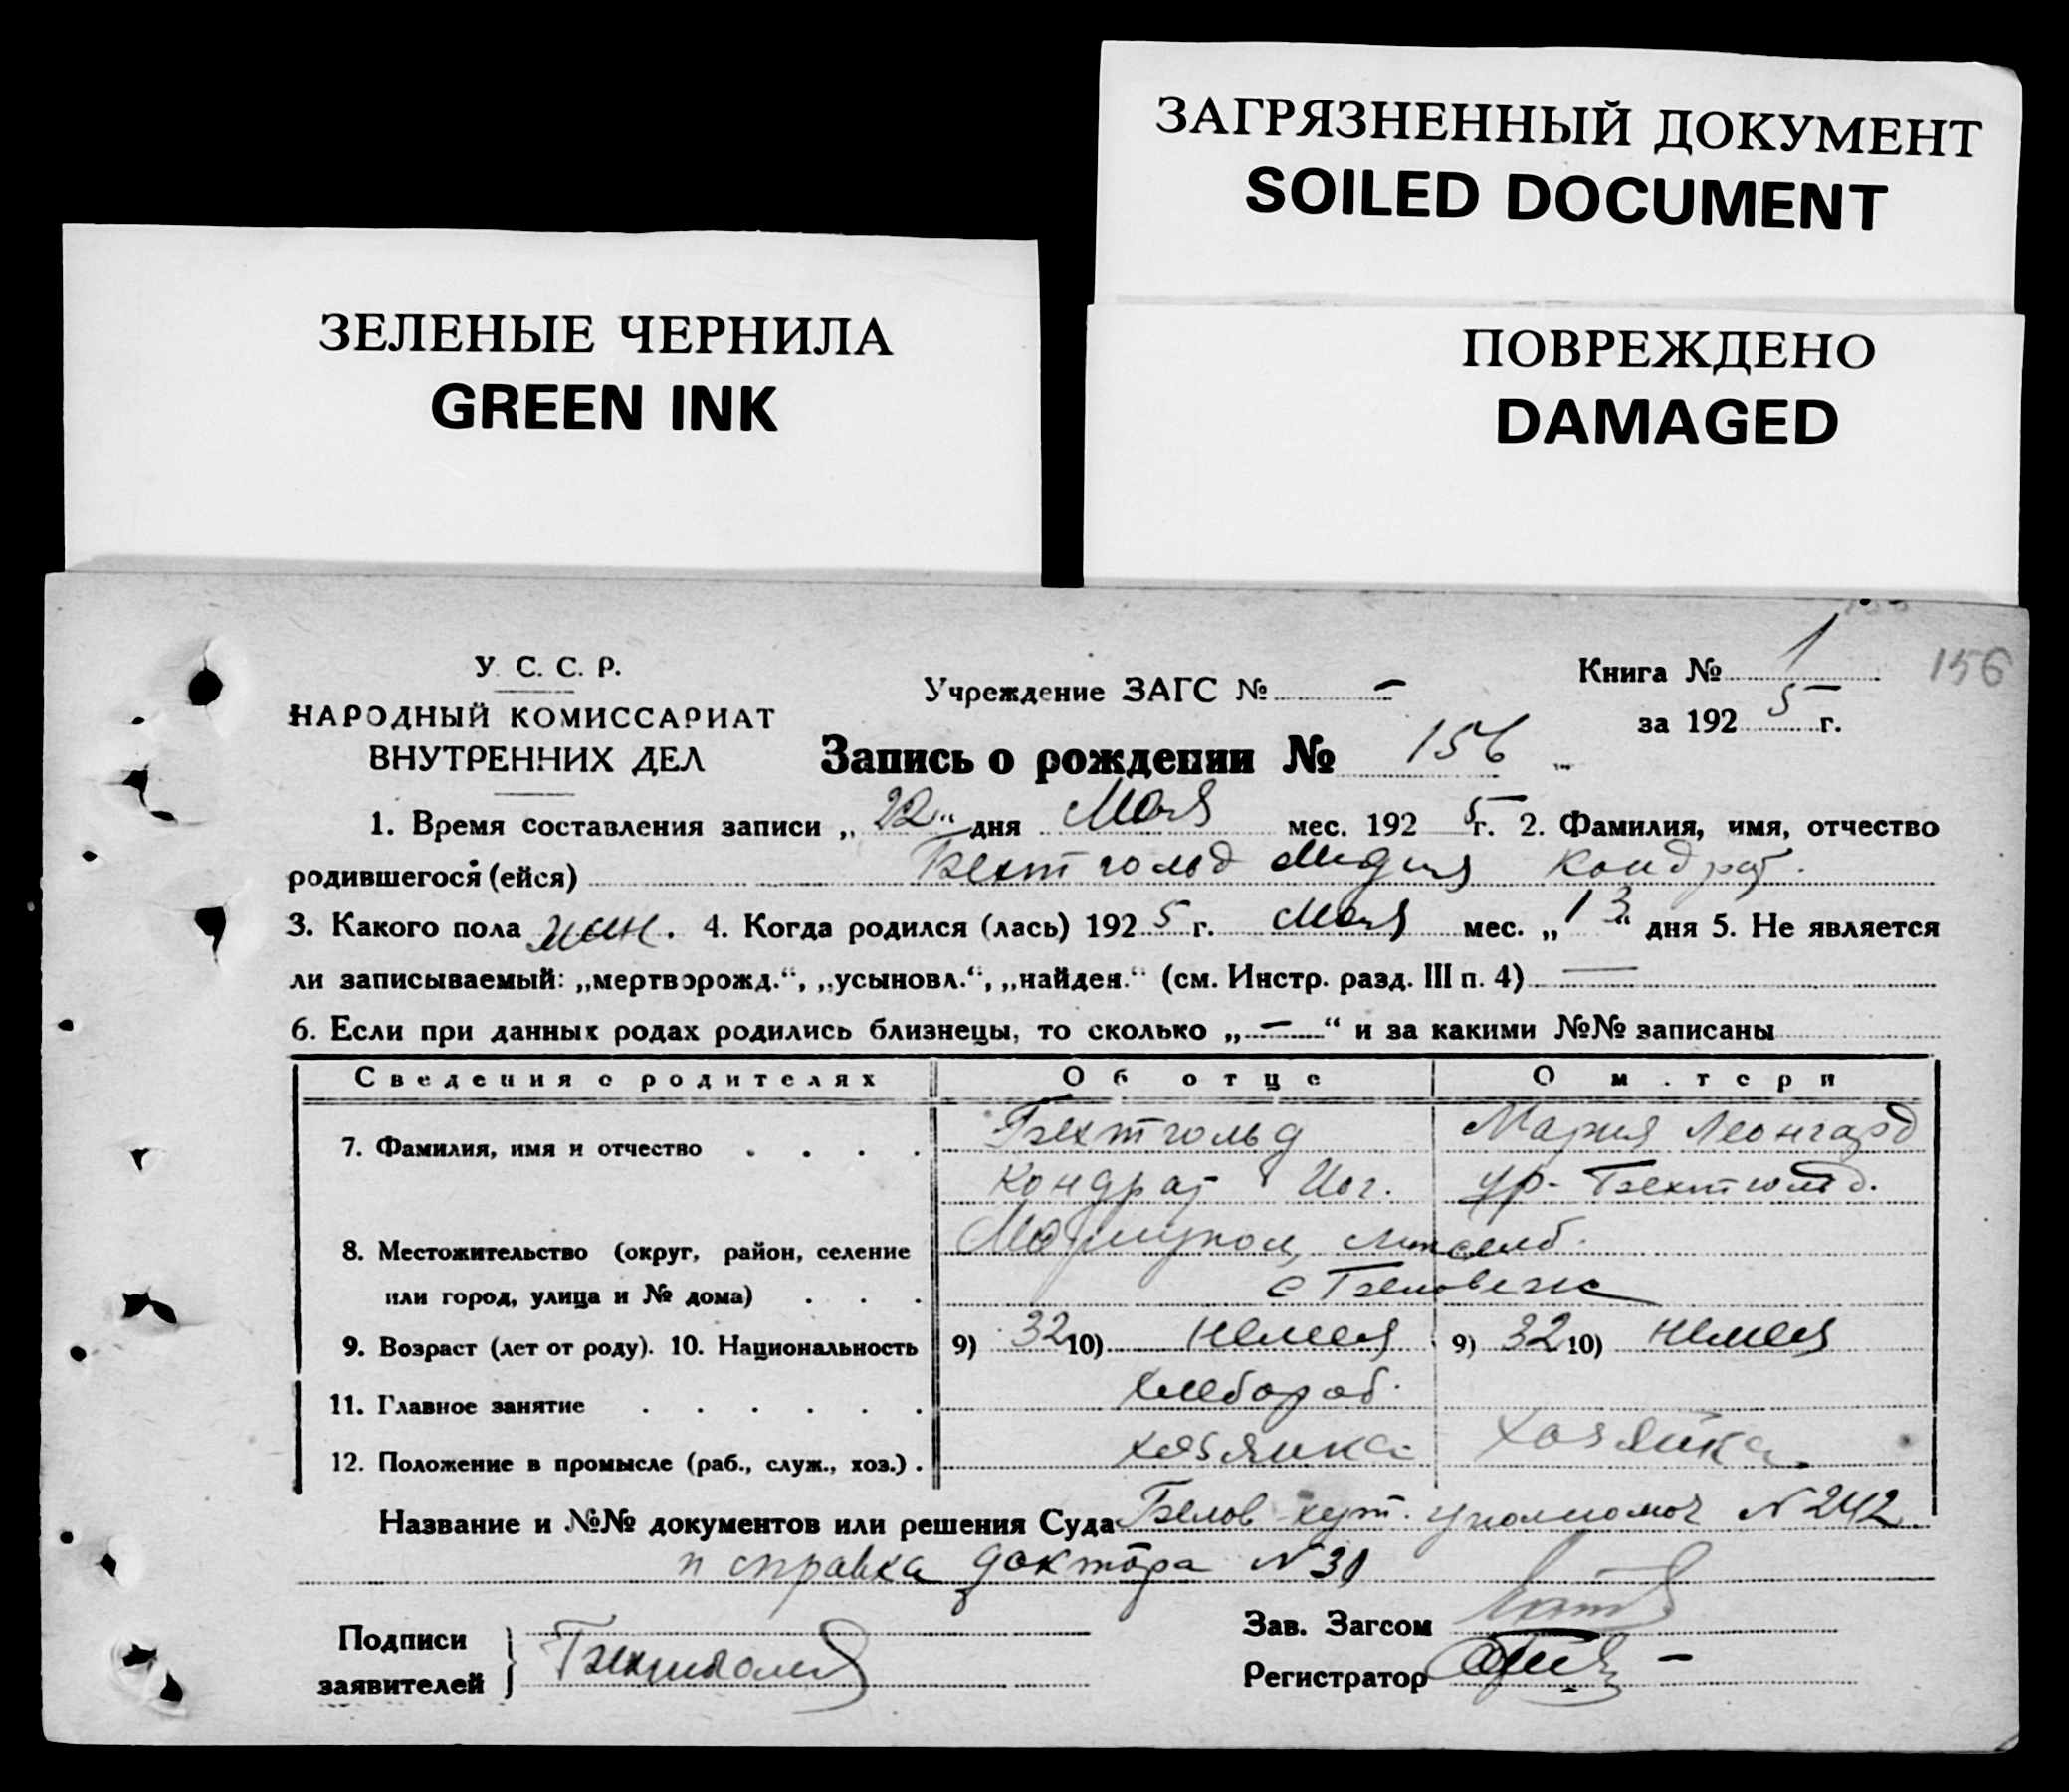 ЗАГРЯЗНЕННЫЙ ДОКУМЕНТ
SOILED DOCUMENT
ЗЕЛЕНЫЕ ЧЕРНИЛА
GREEN INK
ПОВРЕЖДЕНО
DAMAGED
У. С. С. Р.
НАРОДНЫЙ КОМИССАРИАТ
ВНУТРЕННИХ ДЕЛ
Учреждение ЗАГС № –
Книга № 1
156
за 192 5 г.
Запись о рождении № 156
1. Время составления записи „ 22 “ дня Мая мес. 192 5 г. 2. Фамилия, имя, отчество
родившегося (ейся) Бехтгольд Лидия Кондрат.
3. Какого пола жен. 4. Когда родился (лась) 192 5 г. Мая мес. „ 13 “ дня 5. Не является
ли записываемый: „мертворожд.“, „усыновл.“, „найден.“ (см. Инстр. разд. III п. 4) —
6. Если при данных родах родились близнецы, то сколько „ — “ и за какими №№ записаны
Сведения о родителях Об отце О м.тери
7. Фамилия, имя и отчество . . . . Бехтгольд Мария Леонгард
Кондрат Иог. ур. Бехтгольд.
8. Местожительство (округ, район, селение Мариупол,
или город, улица и № дома) . . . с Беловеж
9. Возраст (лет от роду). 10. Национальность 9) 32 10) немец 9) 32 10) немец
11. Главное занятие . . . . . . хлебороб.
12. Положение в промысле (раб., служ., хоз.) . хозяика хозяйка
Название и №№ документов или решения Суда Белов хут. уполномоч N 242
и справка доктора N 31
Подписи
заявителей } Бехтгольд
Зав. Загсом
Регистратор